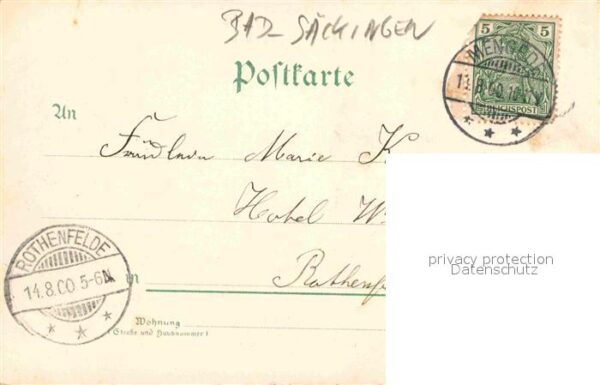 BAD-SÄCKINGEN
Postkarte
5 5
REICHSPOST
An
Fräulein Marie K
Hotel W
ROTHENFELDE
14.8.00.5-6N.
in Rothenf
Wohnung
(Straße und Hausnummer)
privacy protection
Datenschutz